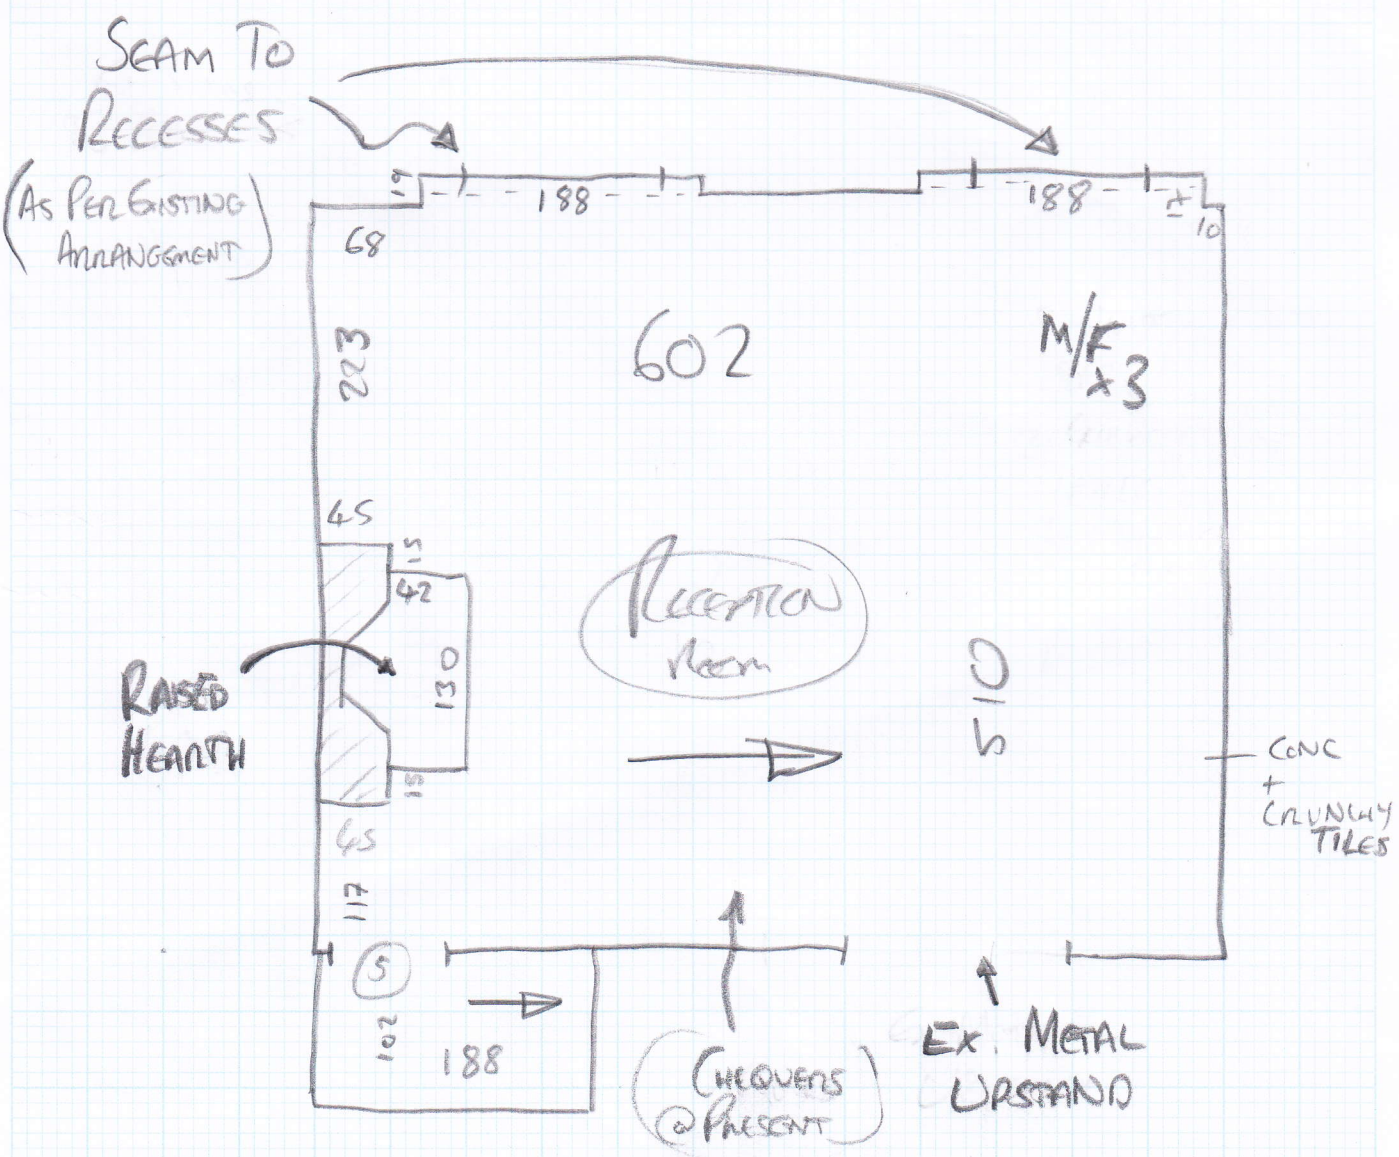 SEAM TO
RECESSES
(AS PER EXISTING
ARRANGEMENT)
19
188
188
17
10
68
223
602
M/F
x3
45
15
42
130
15
RAISED
HEARTH
RECEPTION
ROOM
510
CONC
+
CRUNCHY
TILES
45
117
5
102
188
(CHEQUERS
@ PRESENT)
EX. METAL
UPSTAND